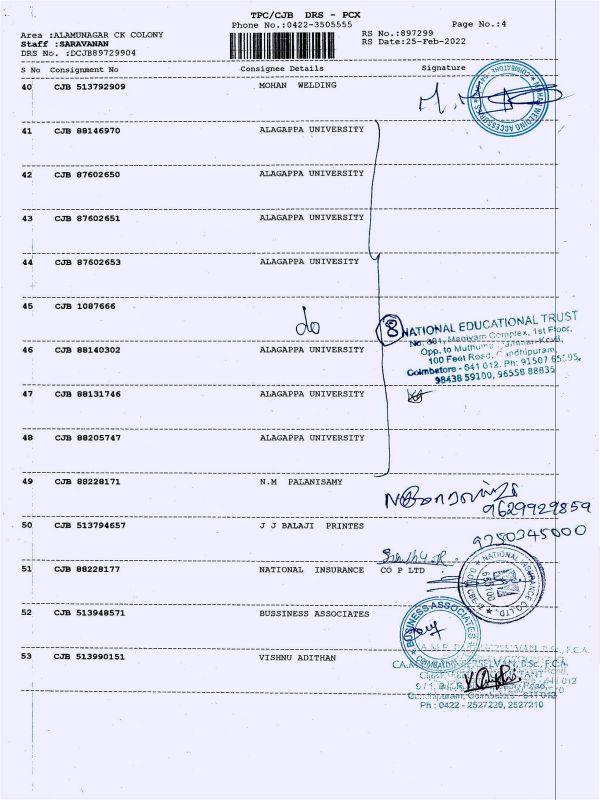 TPC/CJB DRS - PCX
Phone No.:0422-3505555
Page No.:4
Area :ALAMUNAGAR CK COLONY
RS No.:897299
Staff :SARAVANAN
RS Date:25-Feb-2022
DRS No. :DCJB89729904
S No Consignment No Consignee Details Signature
40 CJB 513792909 MOHAN WELDING
41 CJB 88146970 ALAGAPPA UNIVERSITY
42 CJB 87602650 ALAGAPPA UNIVERSITY
43 CJB 87602651 ALAGAPPA UNIVERSITY
44 CJB 87602653 ALAGAPPA UNIVESITY
45 CJB 1087666 do
8
NATIONAL EDUCATIONAL TRUST
Complex, 1st Floor,
Opp. to
100 Feet Road,
Coimbatore - 641 012. Ph: 91507
98438 59100, 96558 88835
46 CJB 88140302 ALAGAPPA UNIVERSITY
47 CJB 88131746 ALAGAPPA UNIVERSITY
48 CJB 88205747 ALAGAPPA UNIVERSITY
49 CJB 88228171 N.M PALANISAMY
9629929859
50 CJB 513794657 J J BALAJI PRINTES
9250345000
51 CJB 88228177 NATIONAL INSURANCE CO P LTD
NATIONAL INSURANCE CO. LTD.
52 CJB 513948571 BUSSINESS ASSOCIATES
BUSINESS ASSOCIATES
53 CJB 513990151 VISHNU ADITHAN
B.Sc., F.C.A.
641 012
Ph : 0422 - 2527220, 2527210